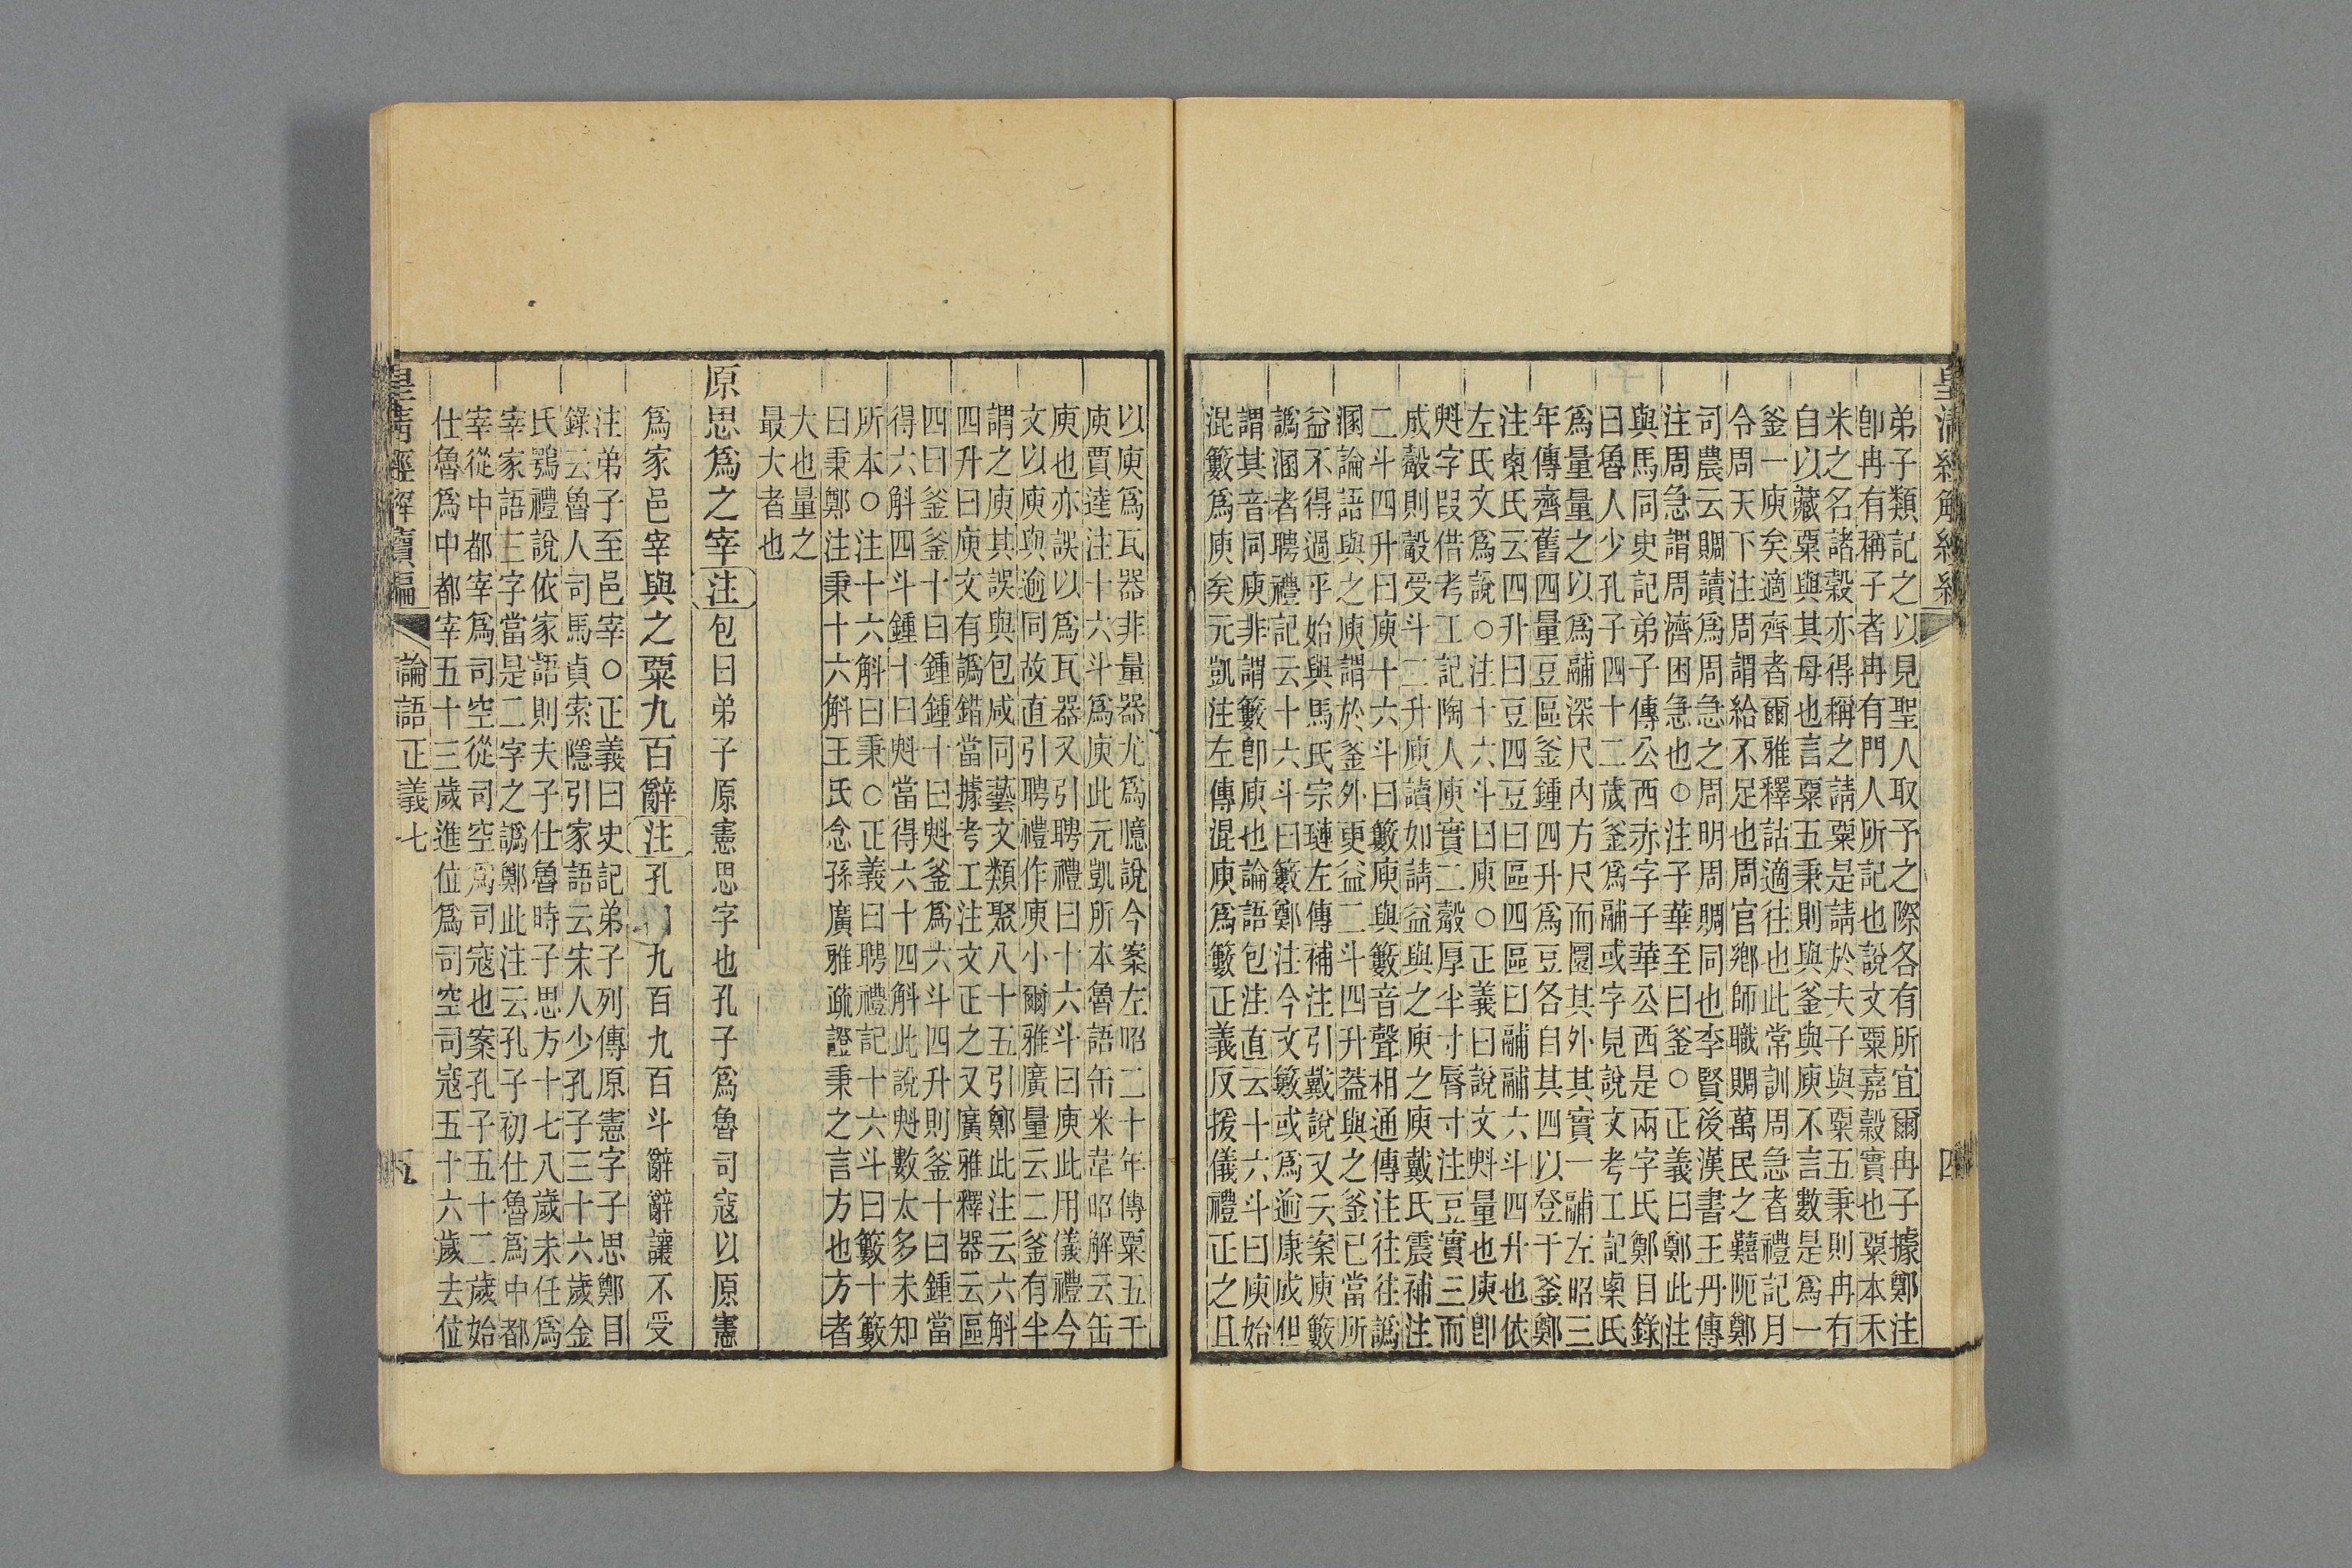 皇清經解續
弟子類記之以見聖人取予之際各有所宜爾冉子據鄭注
卽冉有稱子者冉有門人所記也說文粟嘉穀實也粟本禾
米之名諸穀亦得稱之請粟是請於夫子與粟五秉則冉有
自以藏粟與其母也言粟五秉則與釜與庾不言數是爲一
釜一庾矣適齊者爾雅釋詁適往也此常訓周急者禮記月
令周天下注周謂給不足也周官鄉師職賙萬民之囏阨鄭
司農云賙讀爲周急之周明周賙同也李賢後漢書王丹傳
注周急謂周濟困急也○注子華至曰釜○正義曰鄭此注
與馬同史記弟子傳公西赤字子華公西是兩字氏鄭目錄
曰魯人少孔子四十二歲釜爲鬴或字見說文考工記㮚氏
爲量量之以爲鬴深尺內方尺而圜其外其實一鬴左昭三
年傳齊舊四量豆區釜鍾四升爲豆各自其四以登于釜鄭
注㮚氏云四升曰豆四豆曰區四區曰鬴鬴六斗四升也依
左氏文爲說○注十六斗曰庾○正義曰說文㪺量也庾卽
㪺字叚借考工記陶人庾實二觳厚半寸脣寸注豆實三而
成觳則觳受斗二升庾讀如請益與之庾之庾戴氏震補注
二斗四升曰庾十六斗曰籔庾與籔音聲相通傳注往往譌
溷論語與之庾謂於釜外更益二斗四升葢與之釜已當所
益不得過乎始與馬氏宗璉左傳補注引戴說又云案庾籔
譌溷者聘禮記云十六斗曰籔鄭注今文籔或爲逾康成但
謂其音同庾非謂籔卽庾也論語包注直云十六斗曰庾始
混籔爲庾矣元凱注左傳混庾爲籔正義反援儀禮正之且
四
以庾爲瓦器非量器尤爲臆說今案左昭二十年傳粟五千
庾賈逵注十六斗爲庾此元凱所本魯語缶米韋昭解云缶
庾也亦誤以爲瓦器又引聘禮曰十六斗曰庾此用儀禮今
文以庾與逾同故直引聘禮作庾小爾雅廣量云二釜有半
謂之庾其誤與包咸同藝文類聚八十五引鄭此注云六斛
四升曰庾文有譌錯當據考工注文正之又廣雅釋器云區
四曰釜釜十曰鍾鍾十曰㪺釜爲六斗四升則釜十曰鍾當
得六斛四斗鍾十曰㪺當得六十四斛此說㪺數太多未知
所本○注十六斛曰秉○正義曰聘禮記十六斗曰籔十籔
曰秉鄭注秉十六斛王氏念孫廣雅疏證秉之言方也方者
大也量之
最大者也
原思爲之宰注包曰弟子原憲思字也孔子爲魯司寇以原憲
爲家邑宰與之粟九百辭注孔曰九百九百斗辭辭讓不受
注弟子至邑宰○正義曰史記弟子列傳原憲字子思鄭目
錄云魯人司馬貞索隱引家語云宋人少孔子三十六歲金
氏鶚禮說依家語則夫子仕魯時子思方十七八歲未任爲
宰家語三字當是二字之譌鄭此注云孔子初仕魯爲中都
宰從中都宰爲司空從司空爲司寇也案孔子五十二歲始
仕魯爲中都宰五十三歲進位爲司空司寇五十六歲去位
皇清經解續編 論語正義七 五